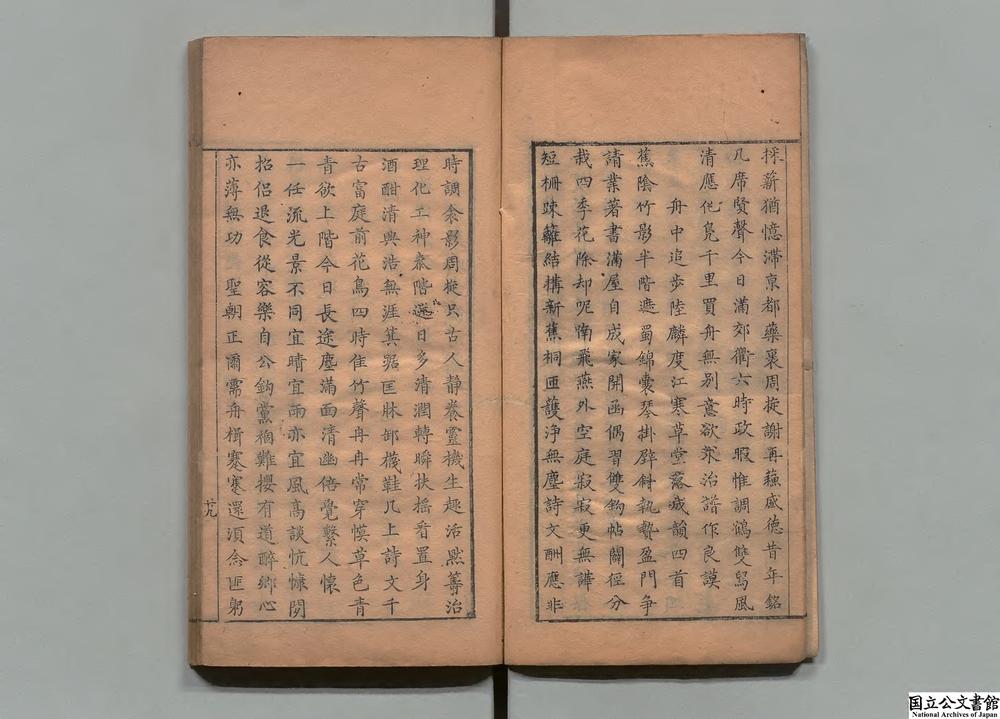 採薪猶憶滯京都藥裹周旋謝再蘓感德昔年銘
几席賢聲今日滿郊衢六時政暇惟調鶴雙舄風
清應化凫千里買舟無別意欲求治譜作良謨
舟中追步陸麟度江寒草堂落成韻四首
蕉陰竹影半階遮蜀錦囊琴掛壁斜執贄盈門爭
請業著書滿屋自成家開函偶習雙鈎帖闢徑分
栽四季花除却呢喃飛燕外空庭寂寂更無譁
短柵踈籬結構新蕉桐匝護淨無塵詩文酬應非
時調衾影周旋只古人靜養靈機生趣活黙籌治
理化工神泰階選日多清潤轉瞬扶搖看置身
酒酣清興浩無涯箕踞匡牀卸襪鞋几上詩文千
古富庭前花鳥四時佳竹聲冉冉常穿幙草色青
青欲上階今日長途塵滿面清幽倍覺繫人懷
一任流光景不同宜晴宜雨亦宜風高談忼慷閱
招侣退食從容樂自公鈎黨禍難攖有道醉鄉心
亦薄無功聖朝正爾需舟楫蹇蹇還須念匪躬
廿九
国立公文書館
National Archives of Japan